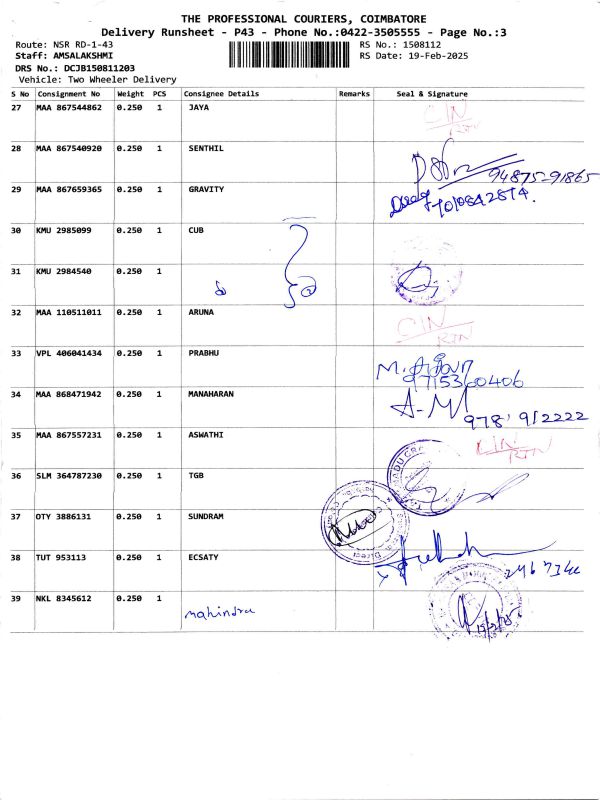 THE PROFESSIONAL COURIERS, COIMBATORE
Delivery Runsheet - P43 - Phone No.:0422-3505555 - Page No.:3
Route: NSR RD-1-43 RS No.: 1508112
Staff: AMSALAKSHMI RS Date: 19-Feb-2025
DRS No.: DCJB150811203
Vehicle: Two Wheeler Delivery
S No Consignment No Weight PCS Consignee Details Remarks Seal & Signature
27 MAA 867544862 0.250 1 JAYA CIN
RTN
28 MAA 867540920 0.250 1 SENTHIL
94875-91865
29 MAA 867659365 0.250 1 GRAVITY
30 KMU 2985099 0.250 1 CUB
31 KMU 2984540 0.250 1
32 MAA 110511011 0.250 1 ARUNA CIN
RTN
33 VPL 406041434 0.250 1 PRABHU
9715360406
34 MAA 868471942 0.250 1 MANAHARAN A-M
35 MAA 867557231 0.250 1 ASWATHI CIN
RTN
36 SLM 364787230 0.250 1 TGB
37 OTY 3886131 0.250 1 SUNDRAM
38 TUT 953113 0.250 1 ECSATY
39 NKL 8345612 0.250 1
mahindra
19/2/25